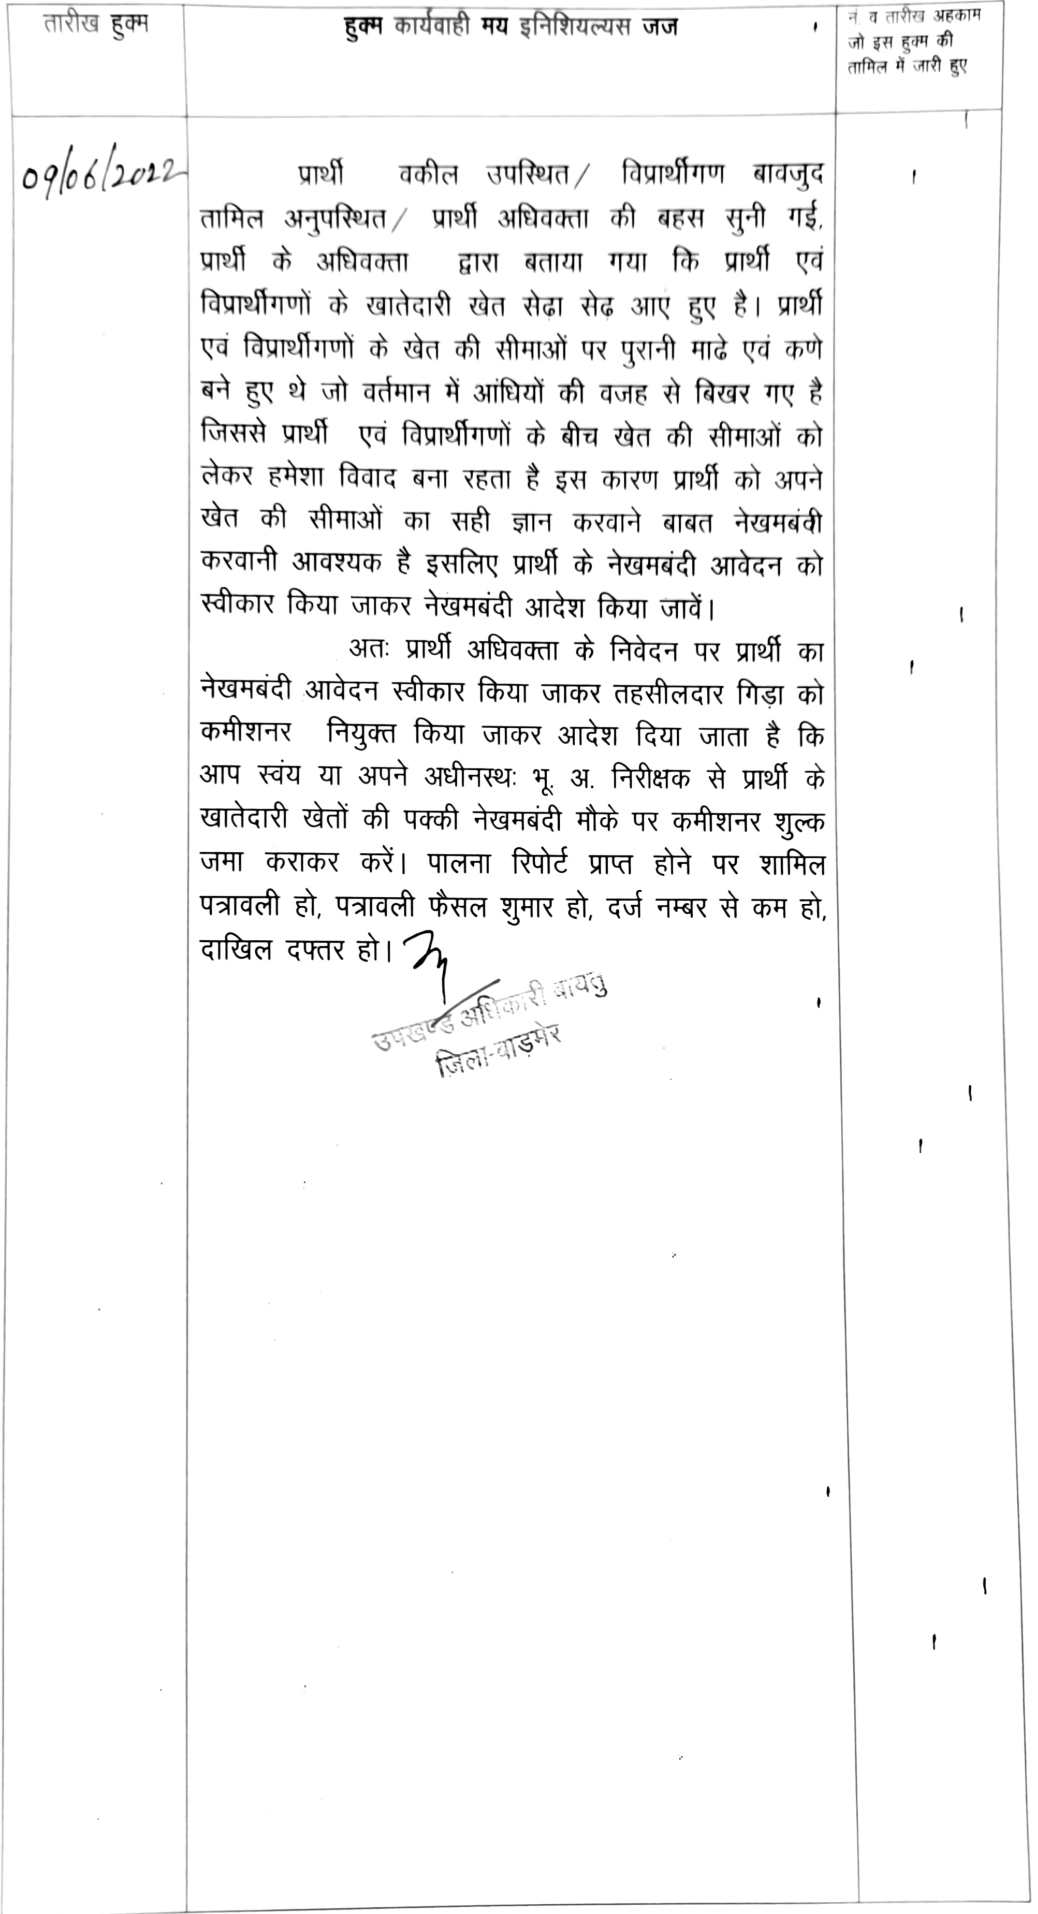 तारीख हुक्म
हुक्म कार्यवाही मय इनिशियल्यस जज
नं. व तारीख अहकाम
जो इस हुक्म की
तामिल में जारी हुए
09/06/2022
प्रार्थी वकील उपस्थित/ विप्रार्थीगण बावजुद
तामिल अनुपस्थित/ प्रार्थी अधिवक्ता की बहस सुनी गई,
प्रार्थी के अधिवक्ता द्वारा बताया गया कि प्रार्थी एवं
विप्रार्थीगणों के खातेदारी खेत सेढ़ा सेढ़ आए हुए है। प्रार्थी
एवं विप्रार्थीगणों के खेत की सीमाओं पर पुरानी माढे एवं कणे
बने हुए थे जो वर्तमान में आंधियों की वजह से बिखर गए है
जिससे प्रार्थी एवं विप्रार्थीगणों के बीच खेत की सीमाओं को
लेकर हमेशा विवाद बना रहता है इस कारण प्रार्थी को अपने
खेत की सीमाओं का सही ज्ञान करवाने बाबत नेखमबंदी
करवानी आवश्यक है इसलिए प्रार्थी के नेखमबंदी आवेदन को
स्वीकार किया जाकर नेखमबंदी आदेश किया जावें।
अतः प्रार्थी अधिवक्ता के निवेदन पर प्रार्थी का
नेखमबंदी आवेदन स्वीकार किया जाकर तहसीलदार गिड़ा को
कमीशनर नियुक्त किया जाकर आदेश दिया जाता है कि
आप स्वंय या अपने अधीनस्थः भू. अ. निरीक्षक से प्रार्थी के
खातेदारी खेतों की पक्की नेखमबंदी मौके पर कमीशनर शुल्क
जमा कराकर करें। पालना रिपोर्ट प्राप्त होने पर शामिल
पत्रावली हो, पत्रावली फैसल शुमार हो, दर्ज नम्बर से कम हो,
दाखिल दफ्तर हो।
उपखण्ड अधिकारी बायतु
ज़िला-बाड़मेर